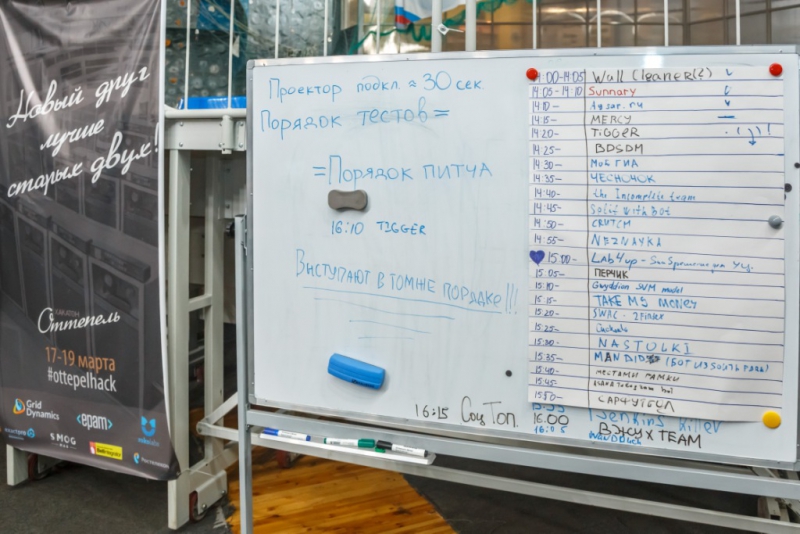 Новый друг
лучше
старых двух!
ХАКАТОН
Оттепель
17-19 марта
#ottepelhack
Grid
Dynamics
epam
SMOG
Ростелеком
Проектор подкл. ≈ 30 сек
Порядок тестов =
= Порядок питча
16:10 TIGGER
Виступают в томже порядке!!!
16:15 Соц Топ.
14:00-14:05 Wall Cleaner(?)
14:05-14:10 Summary
14:10-
14:15- MERCY
14:20- TIGGER
14:25- BDSDM
14:30- МОЯ ГИА
14:35- ЧЕСНОЧОК
14:40- the Incomplete team
14:45-
14:50- CRUTCH
14:55- NEZNAYKA
15:00- Lab4up -
15:05- ПЕРЧИК
15:10- Gwyddion SVM model
15:15- TAKE MY MONEY
15:20- SWAC -
15:25-
15:30- NASTOLKI
15:35-
15:40-
15:45-
15:50- САРЧУТБУЛ
16:00 Jenkins killer
16:05 ВЖУХ TEAM